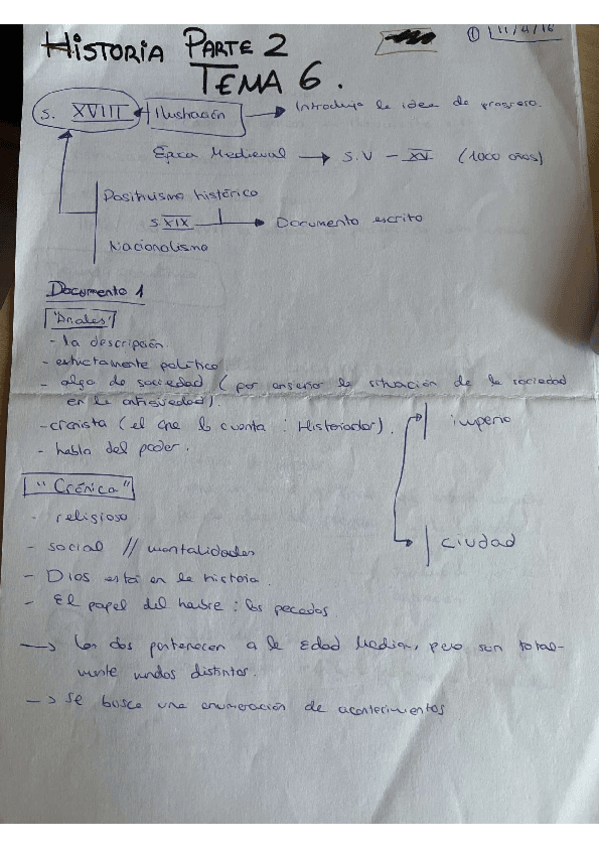 HISTORIA PARTE 2
① 11/4/16
TEMA 6.
S. XVIII Ilustración → Introdujo la idea de progreso.
Época Medieval → S.V - XV (1000 años)
Positivismo histórico
S XIX → Documento escrito
Nacionalismo
Documento 1
"Anales"
- la descripción.
- estrictamente político
- algo de sociedad ( por enseñar la situación de la sociedad
en la antigüedad).
- cronista (el que lo cuenta : Historiador).
imperio
- habla del poder.
"Crónica"
- religioso
- social // mentalidades
ciudad
- Dios está en la historia.
- El papel del hombre : los pecados
→ Los dos pertenecen a la Edad Media, pero son total-
mente distintos.
→ Se busca una enumeración de acontecimientos